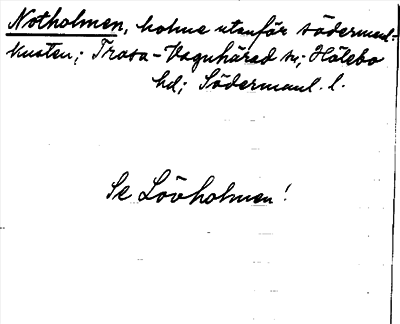 Notholmen, holme utanför södermanl.-
kusten; Trosa-Vagnhärad sn; Hölebo
hd; Södermanl. l.
Se Lövholmen!